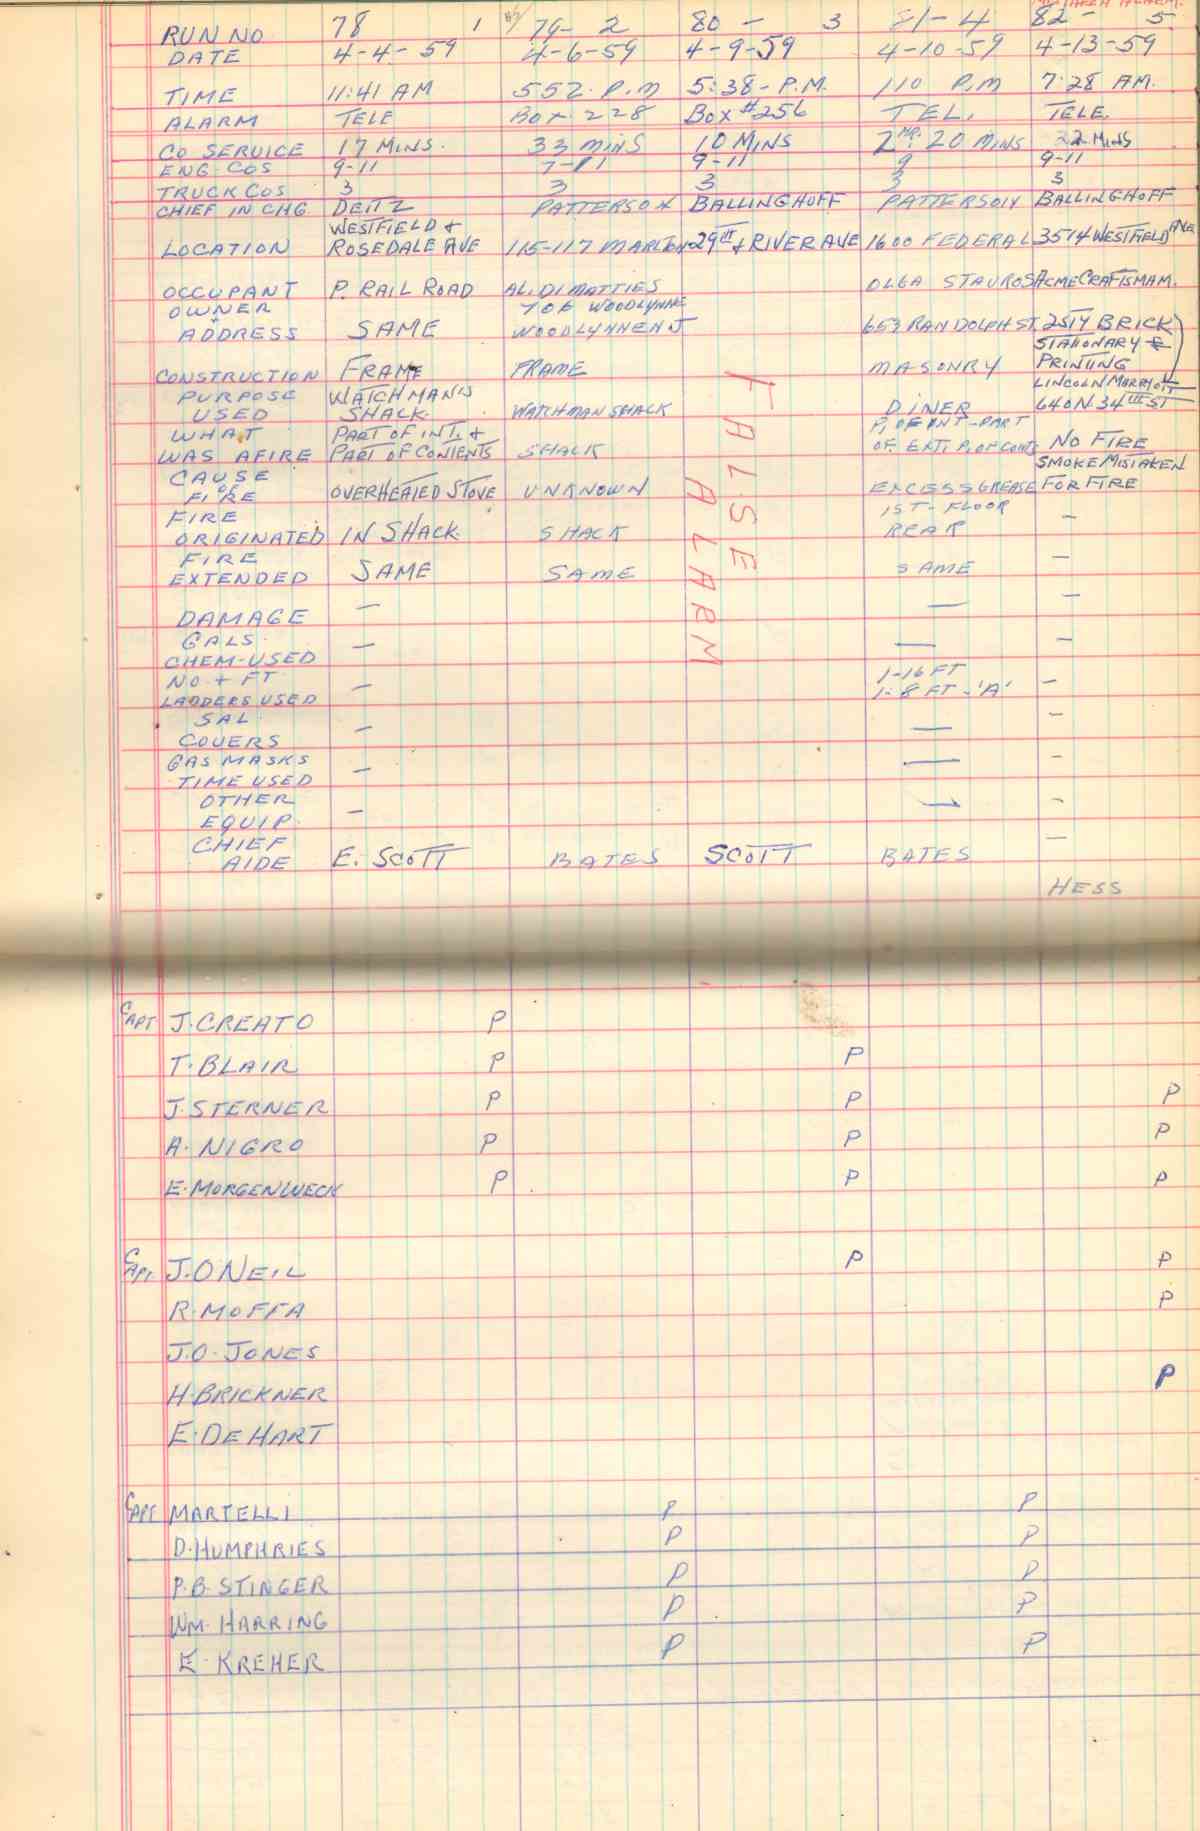 MISTAKEN ALARM.
RUN NO 78 1 79- 2 80 - 3 81-4 82- 5
DATE 4-4-59 4-6-59 4-9-59 4-10-59 4-13-59
TIME 11:41 AM 552.P.M 5:38-P.M. 110 P.M 7:28 AM.
ALARM TELE BOX.228 BOX #256 TEL. TELE.
CO SERVICE 17 MINS. 33 MINS 10 MINS 2 HR. 20 MINS 22 MINS
ENG. COS 9-11 7-11 9-11 9 9-11
TRUCK COS 3 3 3 3 3
CHIEF IN CHG. DEITZ PATTERSON BALLINGHOFF PATTERSON BALLINGHOFF
WESTFIELD &
LOCATION ROSEDALE AVE 115-117 MARLTON 29TH & RIVER AVE 1600 FEDERAL 3514 WESTFIELD AVE
OCCUPANT P. RAIL ROAD AL.DIMATTIES OLGA STAUROS ACME CRAFTSMAM.
OWNER 706 WOODLYNNE
ADDRESS SAME WOODLYNNE N J 653 RANDOLPH ST. 2514 BRICK
STATIONARY &
CONSTRUCTION FRAME FRAME MASONRY PRINTING
PURPOSE WATCHMAN'S LINCOLN MARRIOTT
USED SHACK. WATCHMAN SHACK DINER 640 N. 34TH ST
WHAT PART OF INT. & P. OF INT-PART
WAS AFIRE PART OF CONTENTS SHACK OF. EXT. P. OF CONT. NO FIRE
CAUSE SMOKE MISTAKEN
OF
FIRE OVERHEATED STOVE UNKNOWN EXCESS GREASE FOR FIRE
FIRE 1ST-FLOOR
ORIGINATED IN SHACK. SHACK REAR -
FIRE -
EXTENDED SAME SAME SAME
FALSE
ALARM
DAMAGE - - -
GALS.
CHEM-USED - - -
NO + FT 1-16 FT
LADDERS USED - 1-8 FT-'A' -
SAL.
COVERS - - -
GAS MASKS
TIME USED - - -
OTHER
EQUIP. - - -
CHIEF
AIDE E. SCOTT BATES SCOTT BATES -
HESS
CAPT J. CREATO P
T. BLAIR P P
J. STERNER P P P
A. NIGRO P P P
E. MORGENWECK P P P
CAPT. J. ONEIL P P
R. MOFFA P
J.O. JONES
H. BRICKNER P
E. DEHART
CAPT MARTELLI P P
D. HUMPHRIES P P
P.B. STINGER P P
WM. HARRING P P
E. KREHER P P